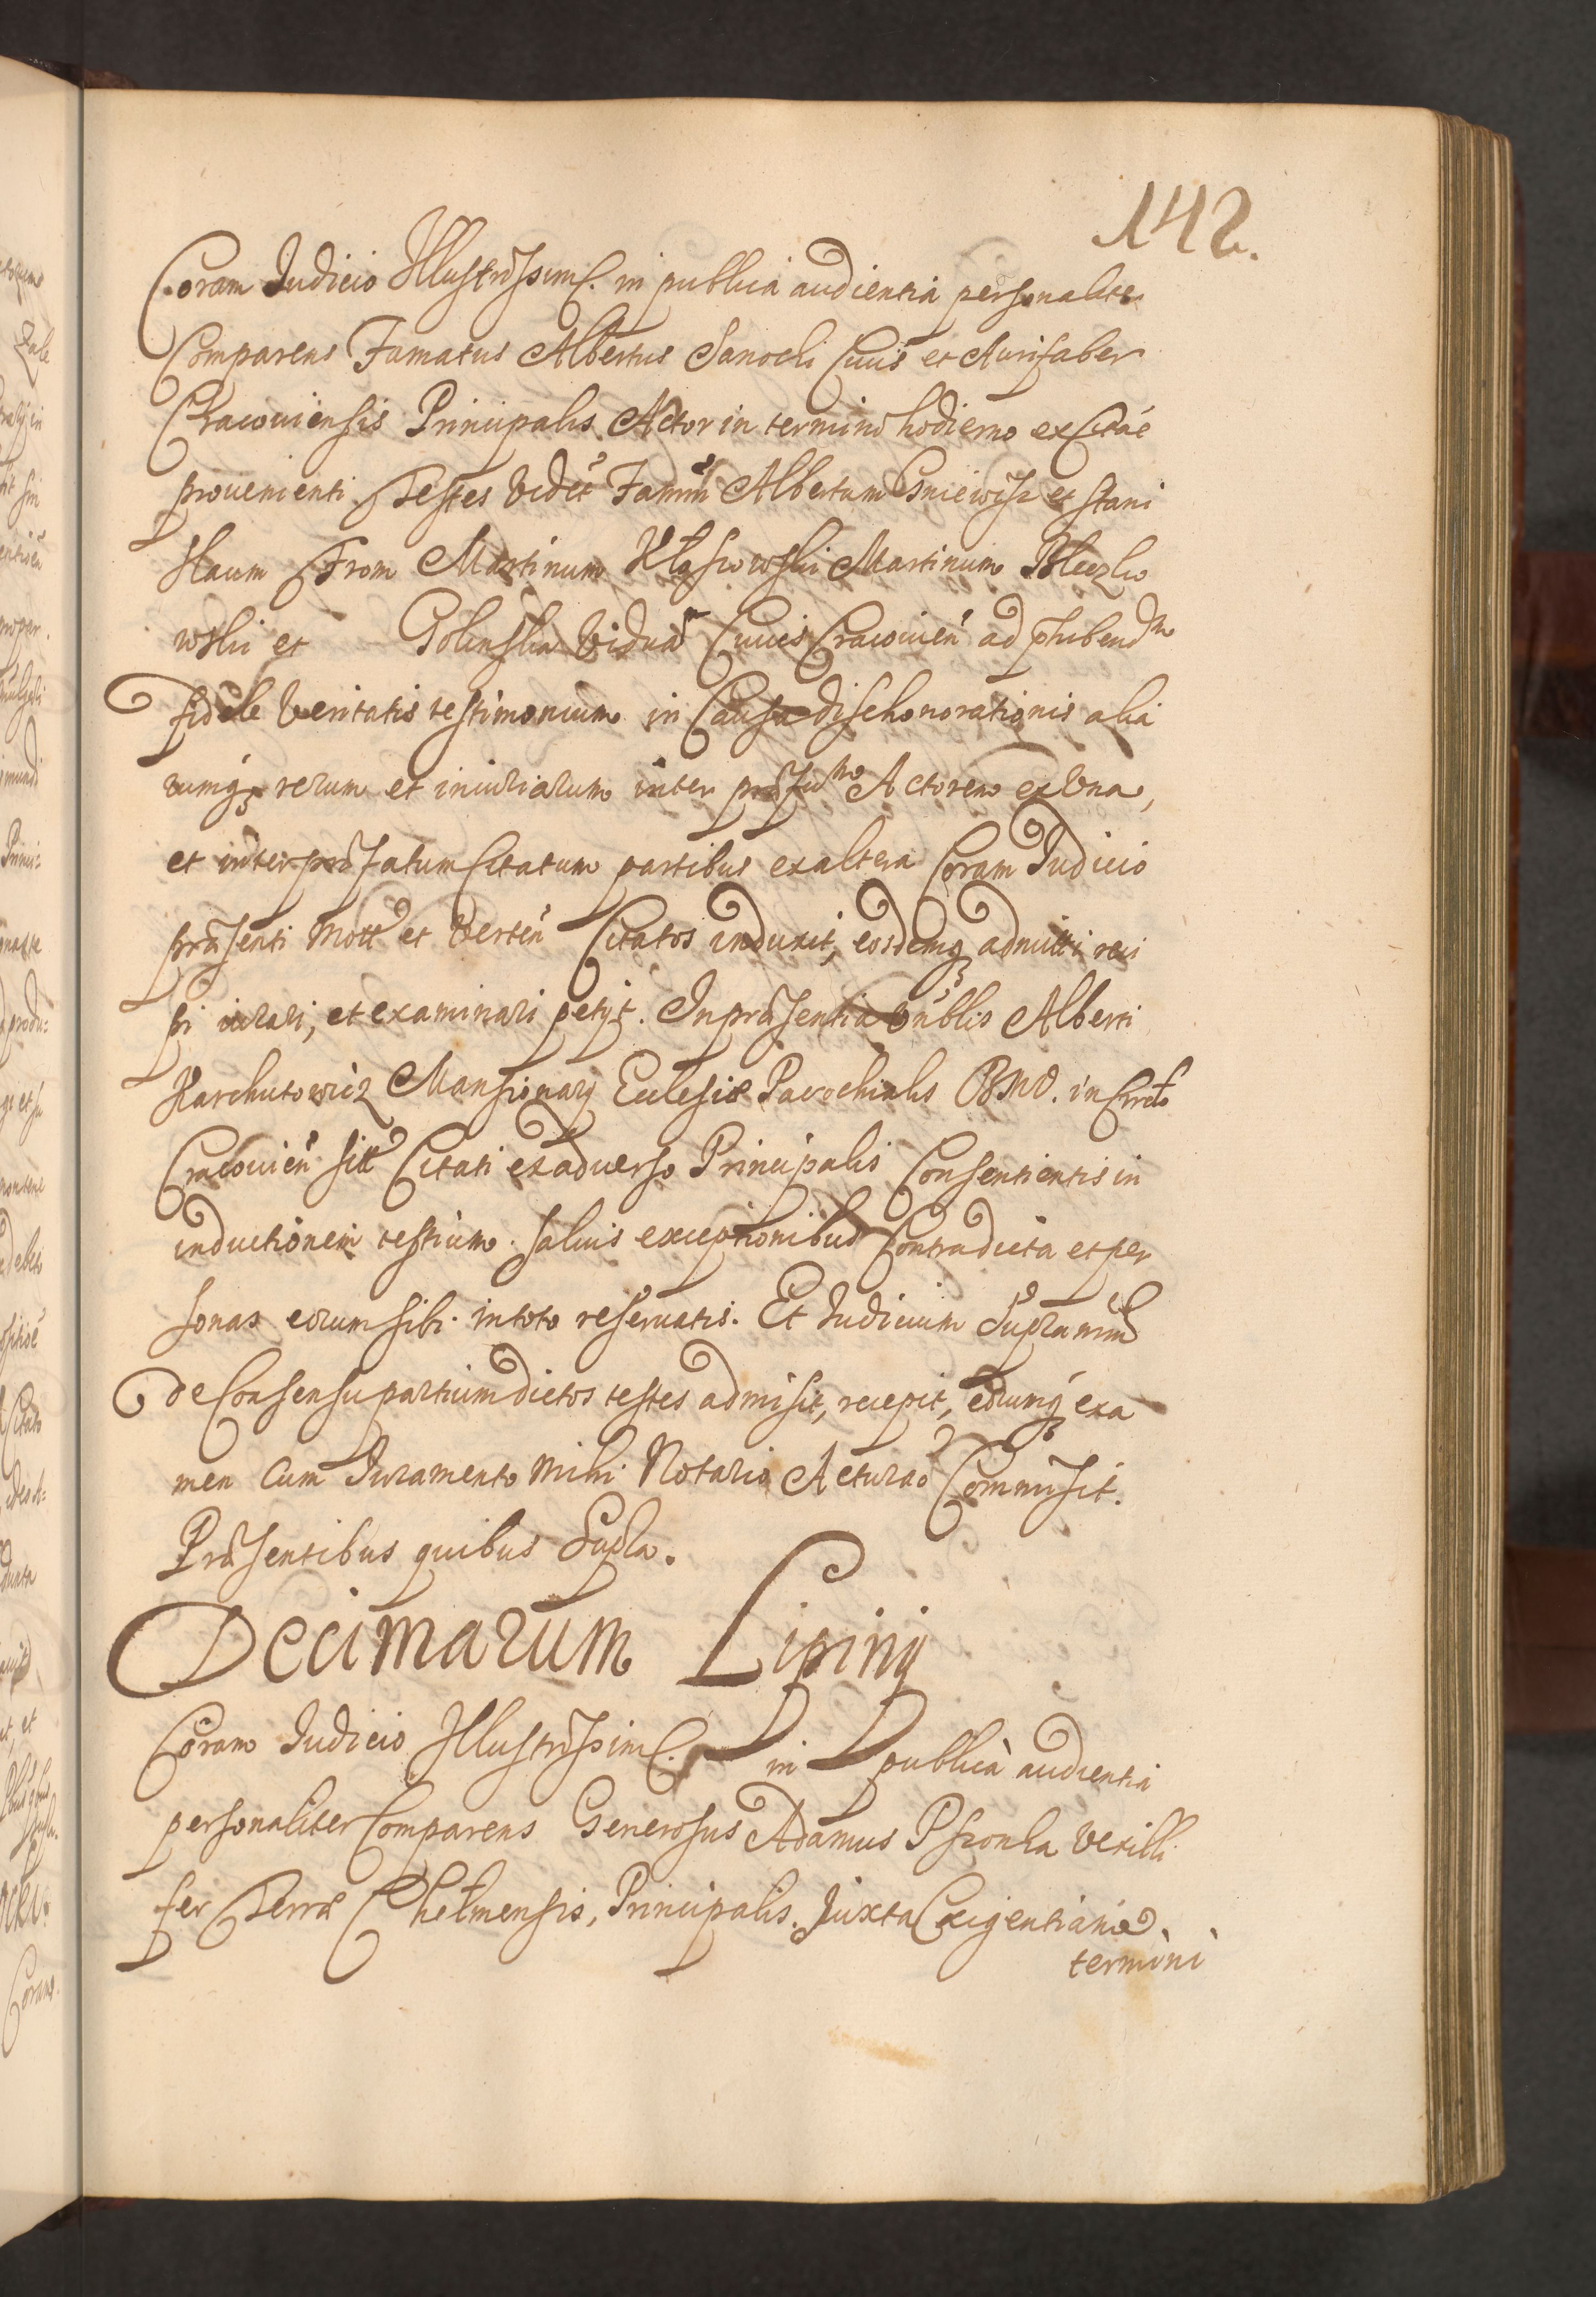 142.
Coram Judicio Illustrissimi. in publica audientia personaliter
Comparens Famatus Albertus Sanocki Ciuis et Aurifaber
Cracouiensis Principalis Actor in termino hodierno ex Citãe
prouenienti Testes videt Famm Albertum Gniewisz et Stani
slaum From Martinum Martinum
wski et Golinska viduã Ciues Cracouien ad phibendm
fidele veritatis testimonium in Causa dischonorationis alia
rumq rerum et iniuriarum inter præfatm Actorem ex vna,
et inter præfatum Citatum partibus ex altera Coram Judicio
præsenti mott et verten Citatos induxit, eosdemq admitti reci
pi iurari, et examinari petyt. In præsentia Alberti
Karchutowicz Mansionary Eclesiæ Parochialis BMV. in Circto
Cracouien sitt Citati ex aduerso Principalis Consentientis in
inductionem testium. saluis exceptionibus Contra dicta et per
sonas eorum sibi in toto reseruatis. Et Judicium
de Consensu partium dictos testes admisit, recepit, eorumq exa
men Cum Juramento mihi Notario Actorão Commisit.
Præsentibus quibus Supra.
Decimarum Lipiny
Coram Judicio Illustrissimi. in publica audientia
personaliter Comparens Generosus Adamus Pszonka vexilli
fer Terræ Chełmensis, Principalis. Juxta Exigentiam
termini